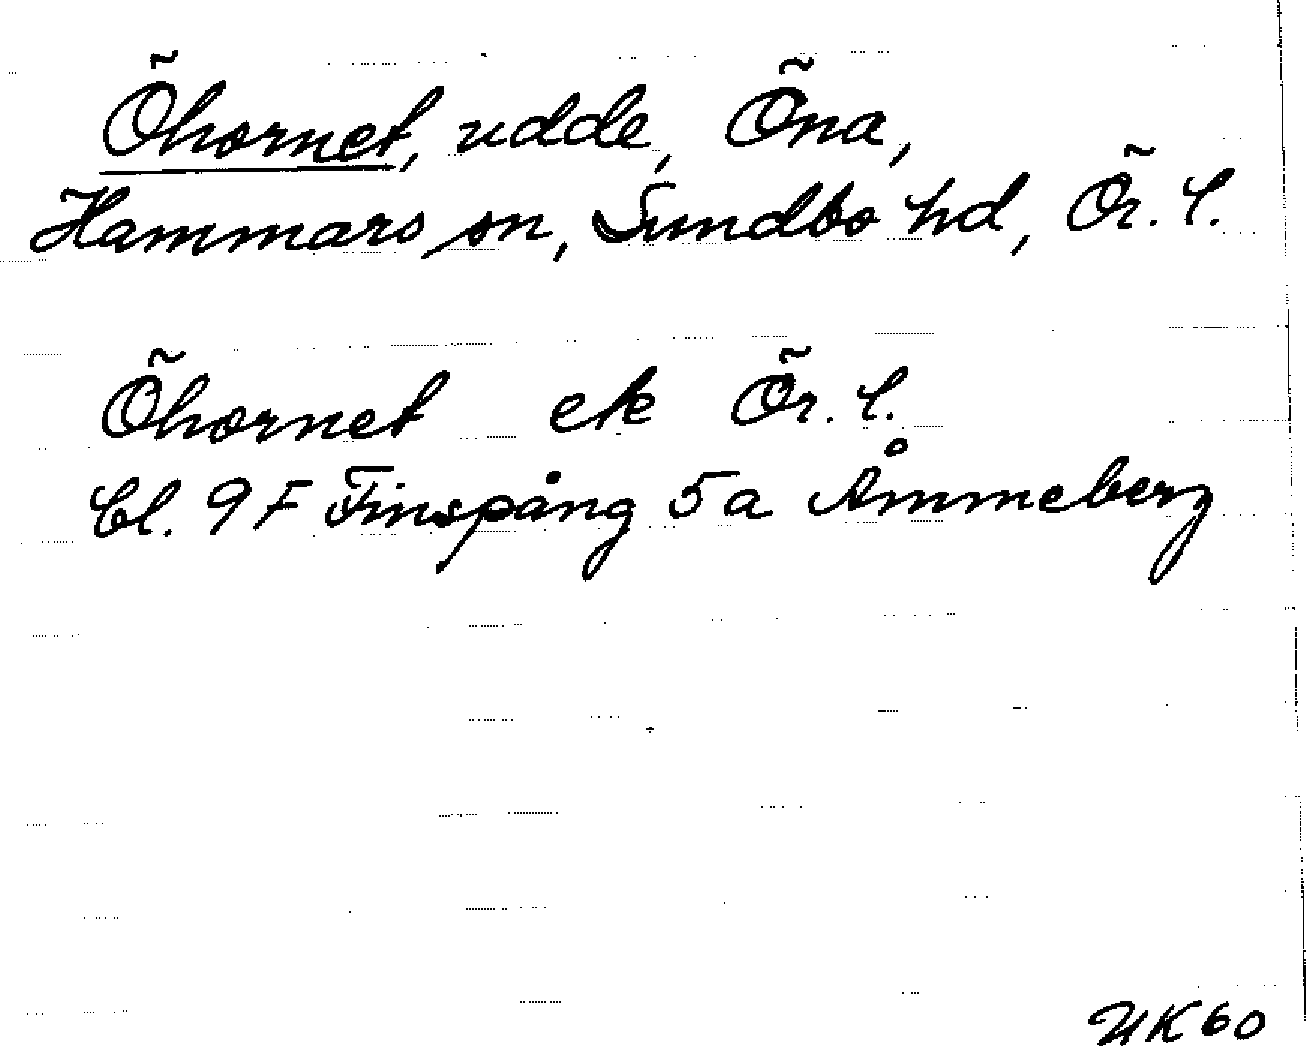 Öhornet, udde, Öna,
Hammars sn, Sundbo hd, Ör. l.
Öhornet ek Ör. l.
Bl. 9F Finspång 5a Åmmeberg
UK60